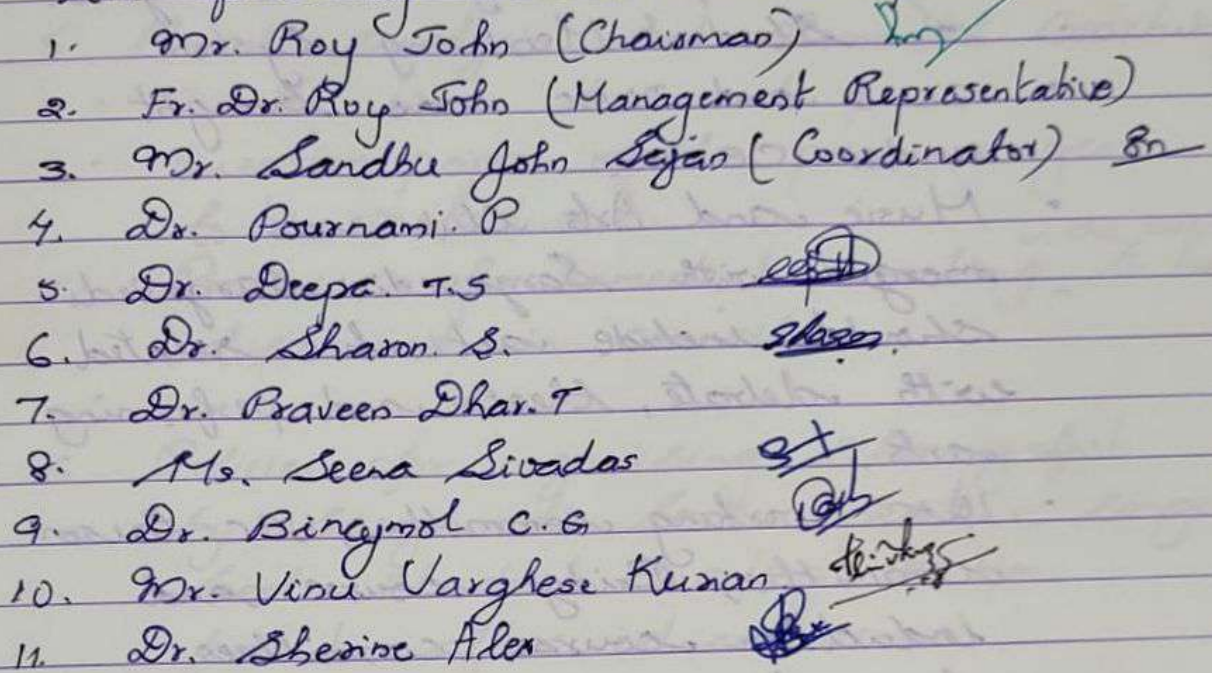 1. Mr. Roy John (Chairman)
2. Fr. Dr. Roy John (Management Representative)
3. Mr. Sandhu John Sajan (Coordinator)
4. Dr. Pournami. P
5. Dr. Deepa. T.S
6. Dr. Sharon. S. Sharon
7. Dr. Praveen Dhar. T
8. Ms. Seena Sivadas
9. Dr. Bincymol C.G
10. Mr. Vinu Varghese Kurian
11. Dr. Sherine Alex